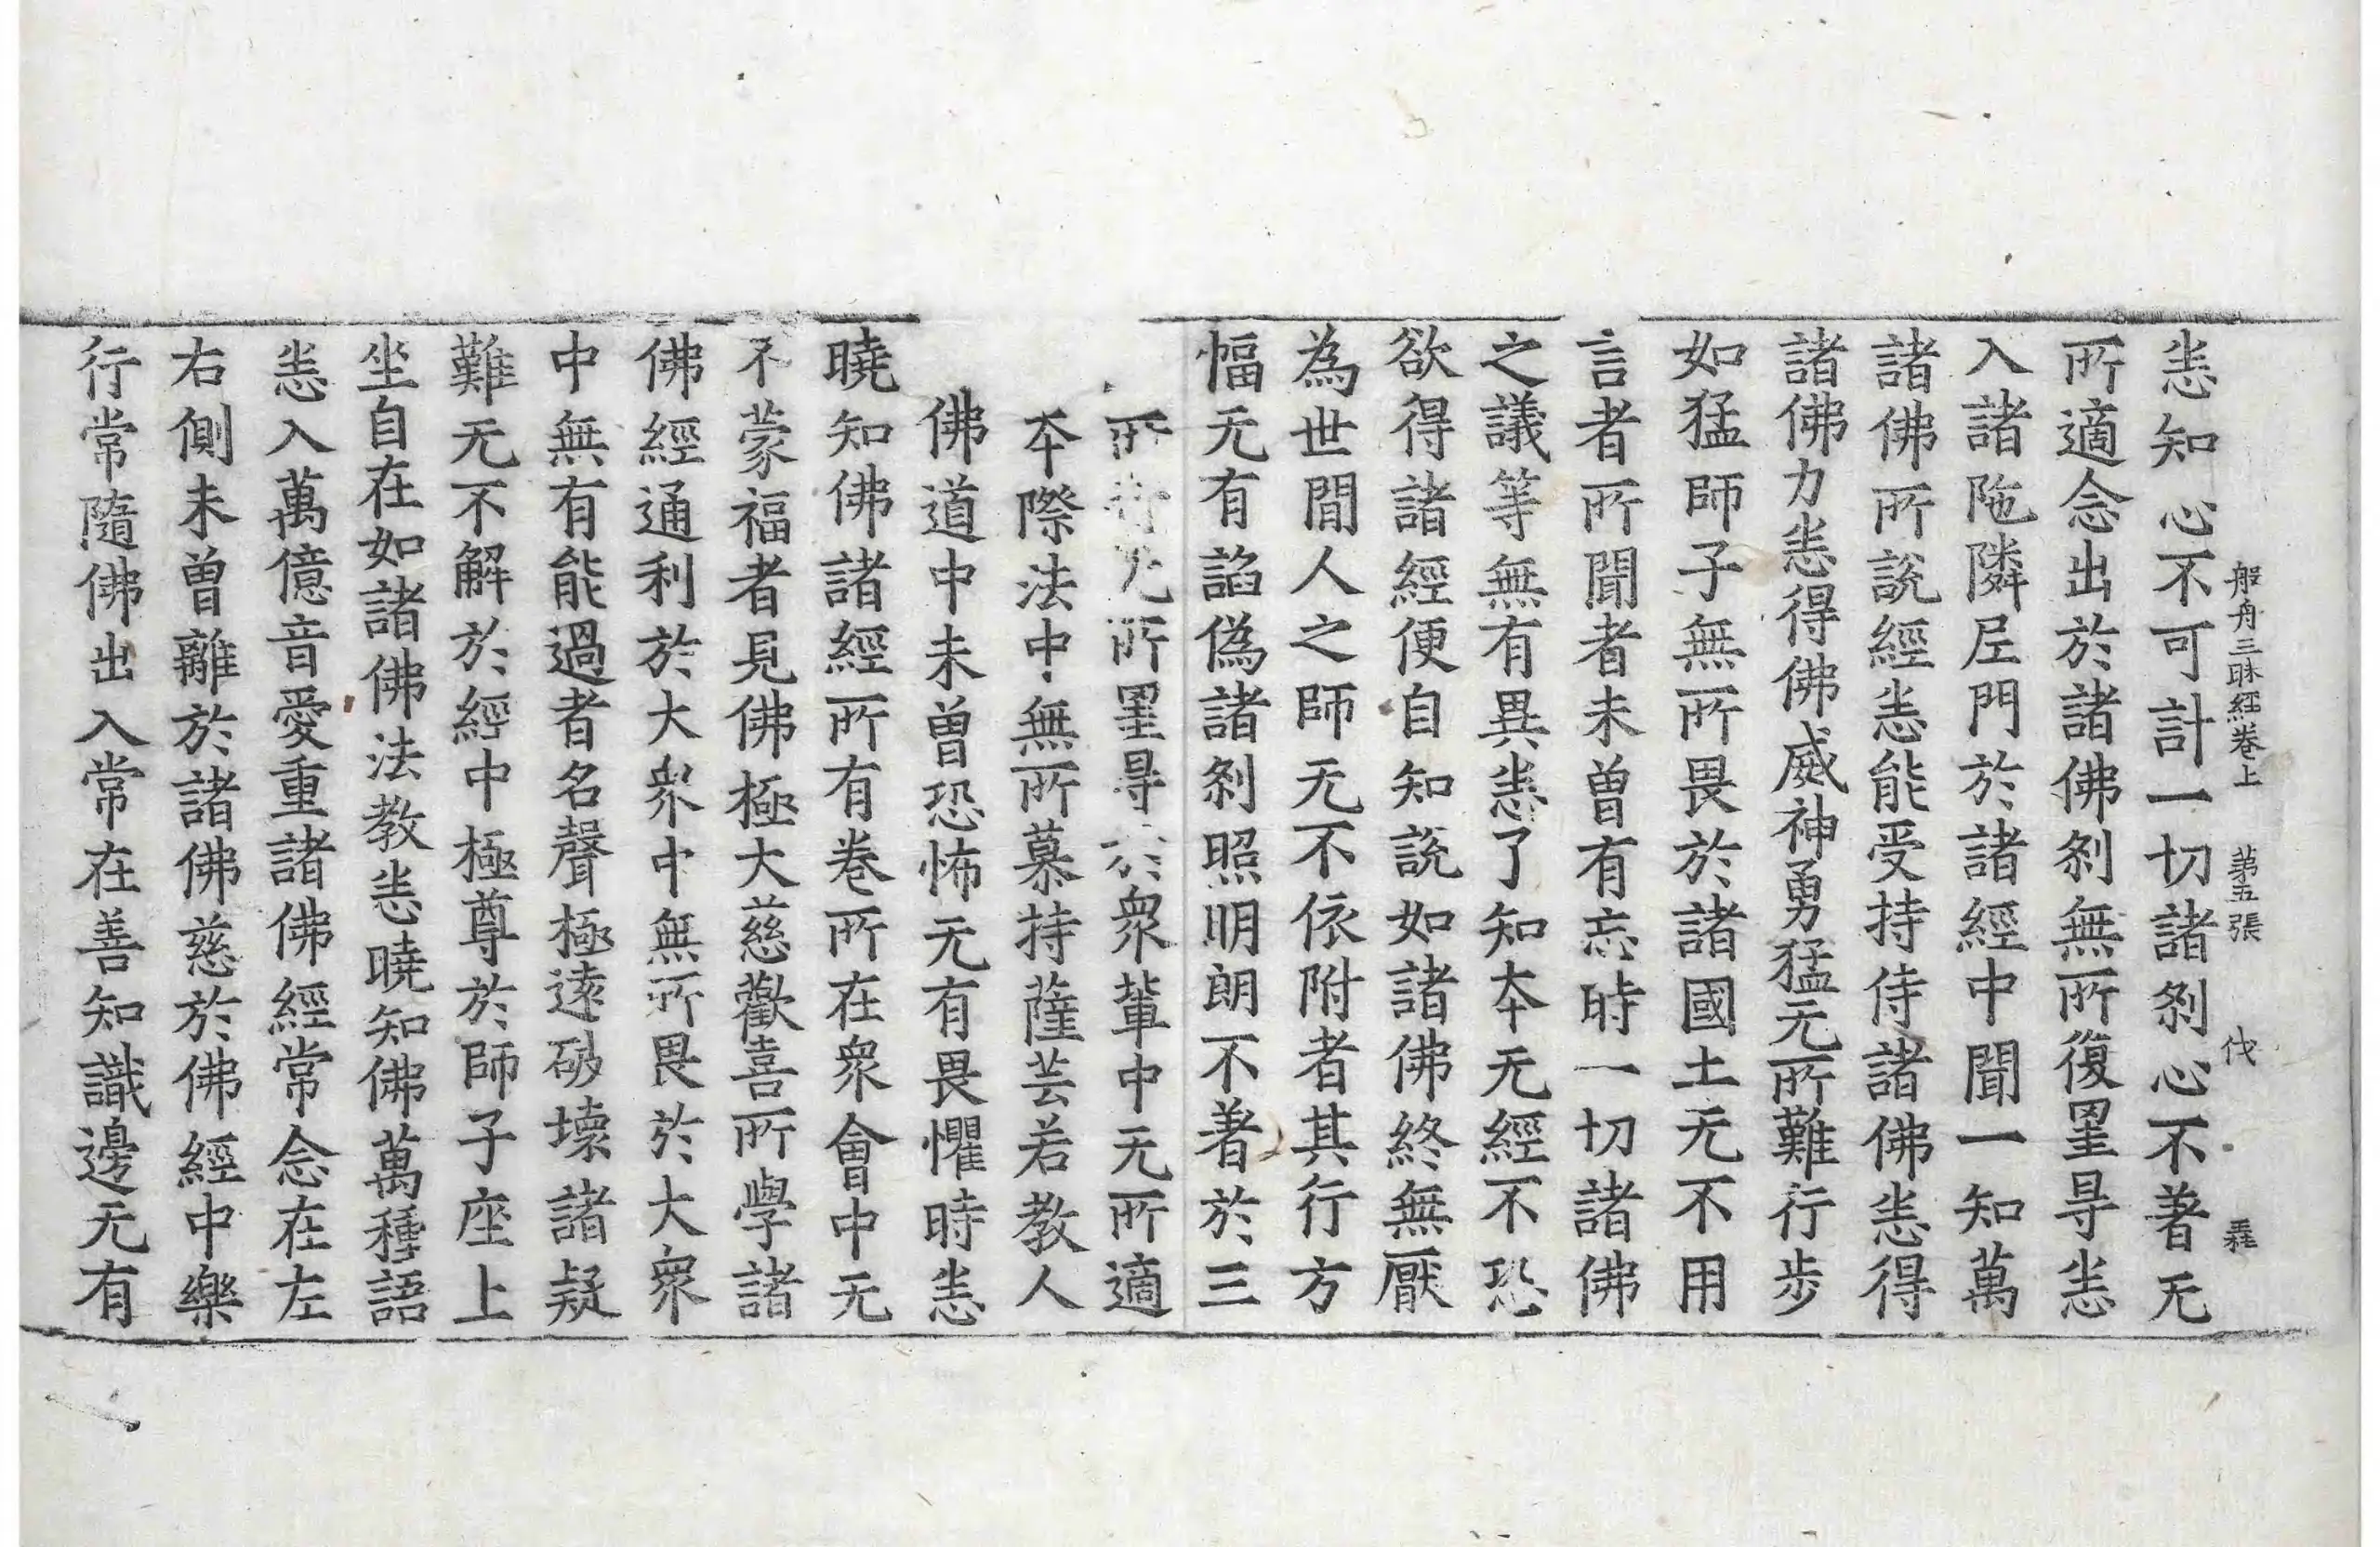 般舟三昧経卷上 第五張 伐
恙知心不可計一切諸刹心不著无
所適念出於諸佛刹無所復罣㝵恙
入諸陁隣尼門於諸經中聞一知萬
諸佛所說經恙能受持侍諸佛恙得
諸佛力恙得佛威神勇猛无所難行步
如猛師子無所畏於諸國土无不用
言者所聞者未曽有忘時一切諸佛
之議等無有異恙了知本无經不恐
欲得諸經便自知說如諸佛終無厭
為世間人之師无不依附者其行方
幅无有諂偽諸刹照明朗不著於三
所 所罣㝵於衆軰中无所適
本際法中無所慕持薩芸若教人
佛道中未曽恐怖无有畏懼時恙
曉知佛諸經所有卷所在衆會中无
不蒙福者見佛極大慈歡喜所學諸
佛經通利於大衆中無所畏於大衆
中無有能過者名聲極遠破壞諸疑
難无不解於經中極尊於師子座上
坐自在如諸佛法教恙曉知佛萬種語
恙入萬億音愛重諸佛經常念在左
右側未曽離於諸佛慈於佛經中樂
行常隨佛出入常在善知識邊无有